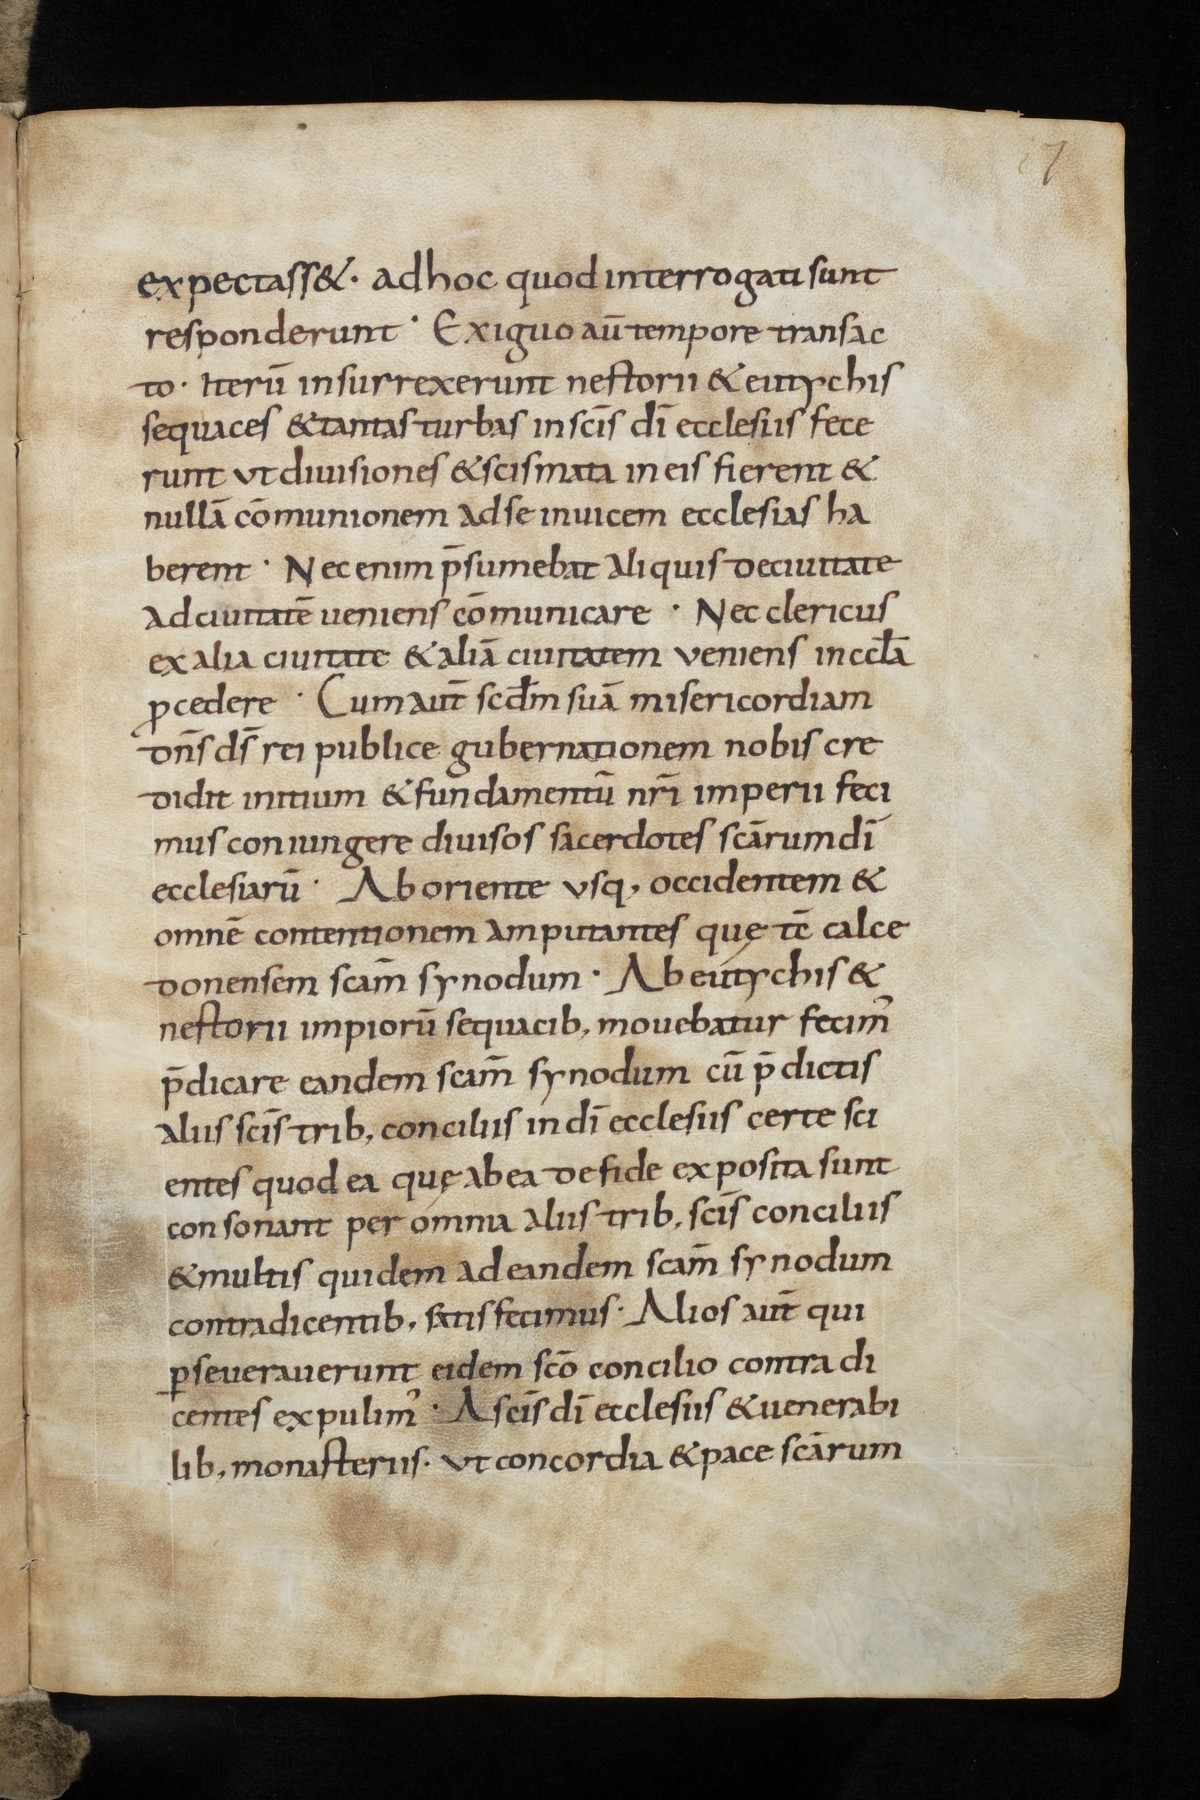 7
expectass&. adhoc quod interrogati sunt
responderunt · Exiguo aū tempore transac
to· Iterū insurrexerunt nestorii & eutychis
sequaces & tantas turbas in scīs dī ecclesiis fece
runt ut diuisiones & scismata in eis fierent &
nullā cōmunionem ad se inuicem ecclesias ha
berent · Nec enim p̄sumebat aliquis deciuitate
ad ciuitatē ueniens cōmunicare · Nec clericus
ex alia ciuitate & aliā ciuitatem veniens in eccl̄a
ꝓcedere · Cum aut̄ scd̄m suā misericordiam
dn̄s ds̄ rei publice gubernationem nobis cre
didit initium & fundamentū nr̄i imperii feci
mus coniungere diuisos sacerdotes scārum dī
ecclesiarū · Ab oriente vsq, occidentem &
omnē contentionem amputantes quę tē calce
donensem scam̄ synodum · Ab eutychis &
nestorii impiorū sequacib, mouebatur fecim᾽
p̄dicare eandem scam̄ synodum cū p̄dictis
aliis scīs trib, conciliis in dī ecclesiis certe sci
entes quod ea quę ab ea de fide exposita sunt
consonant per omnia aliis trib, scīs conciliis
& multis quidem ad eandem scam̄ synodum
contradicentib, satisfecimus· Alios aut̄ qui
ꝑseuerauerunt eidem scō concilio contradi
centes expulim᾽ · A scīs dī ecclesiis & uenerabi
lib, monasteriis· vt concordia & pace scārum